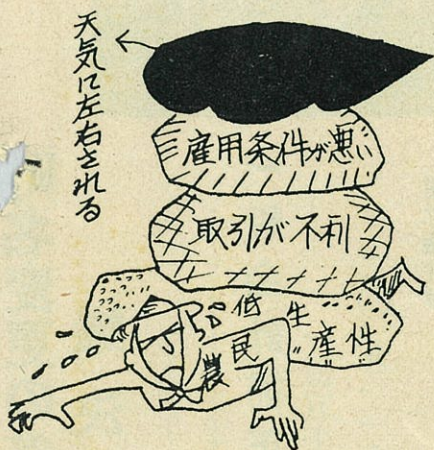 天気に左右される
雇用条件が悪い
取引が不利
低生産性
農民